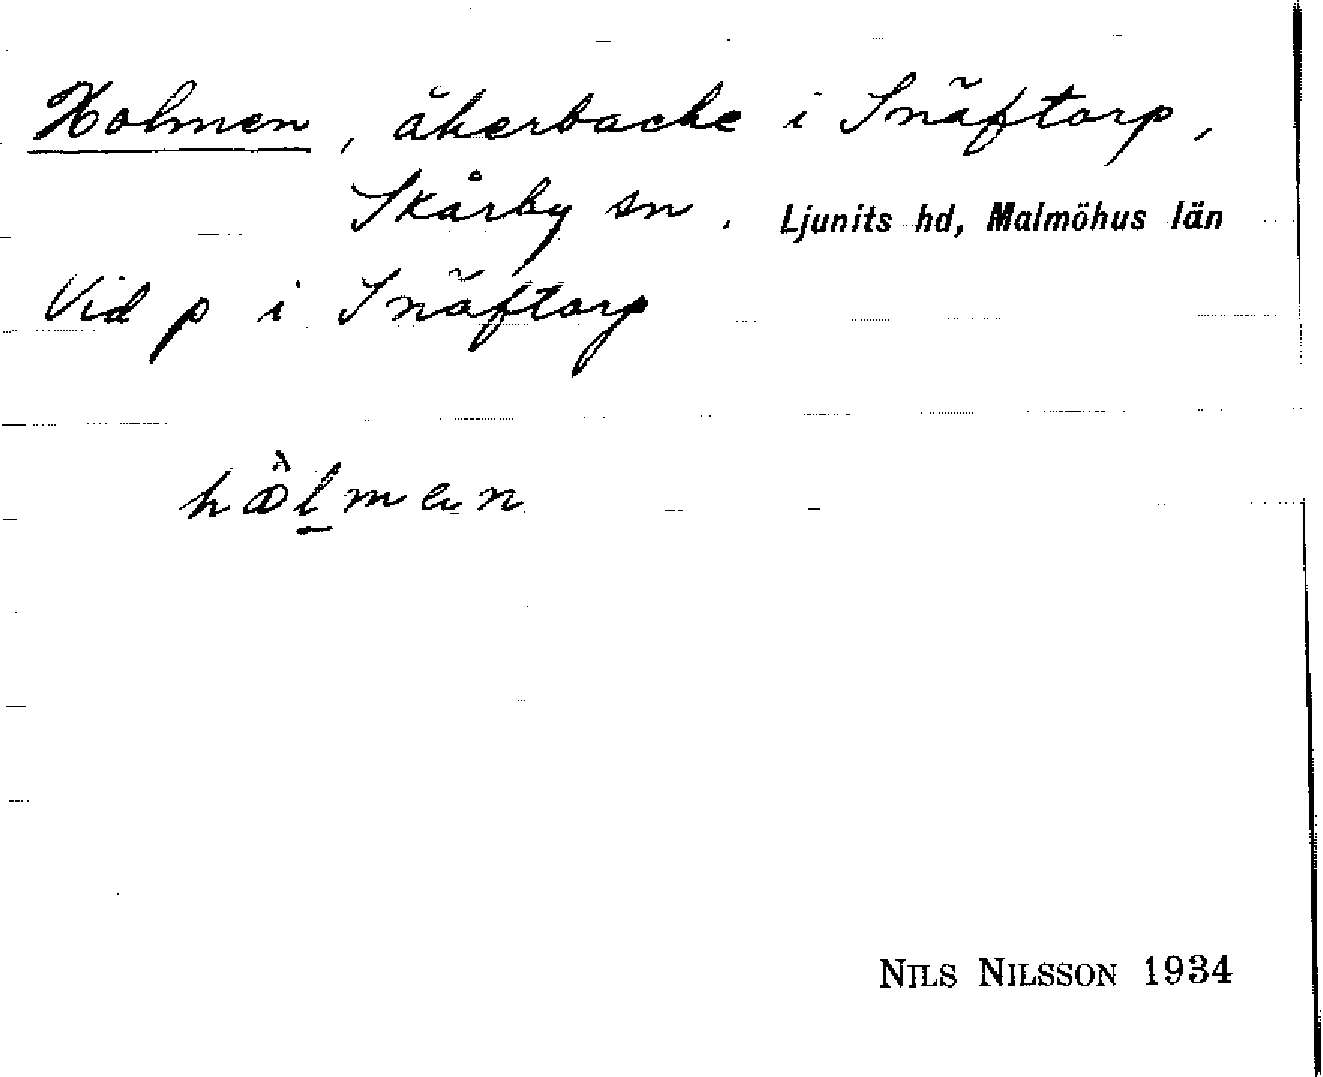 Holmen, åkerbacke i Snäftorp,
Skårby sn. Ljunits hd, Malmöhus län
Vid p i Snäftorp
NILS NILSSON 1934